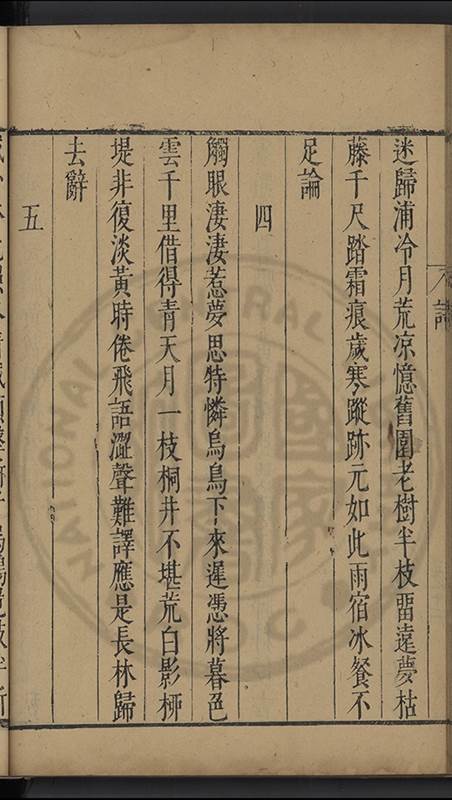 迷歸浦冷月荒凉憶舊園老樹半枝畱遠夢枯
藤千尺踏霜痕歲寒蹤跡元如此雨宿冰餐不
足論
四
觸眼淒淒惹夢思特憐烏鳥下來遲憑將暮色
雲千里借得青天月一枝桐井不堪荒白影柳
堤非復淡黃時倦飛語澀聲難譯應是長林歸
去辭
五